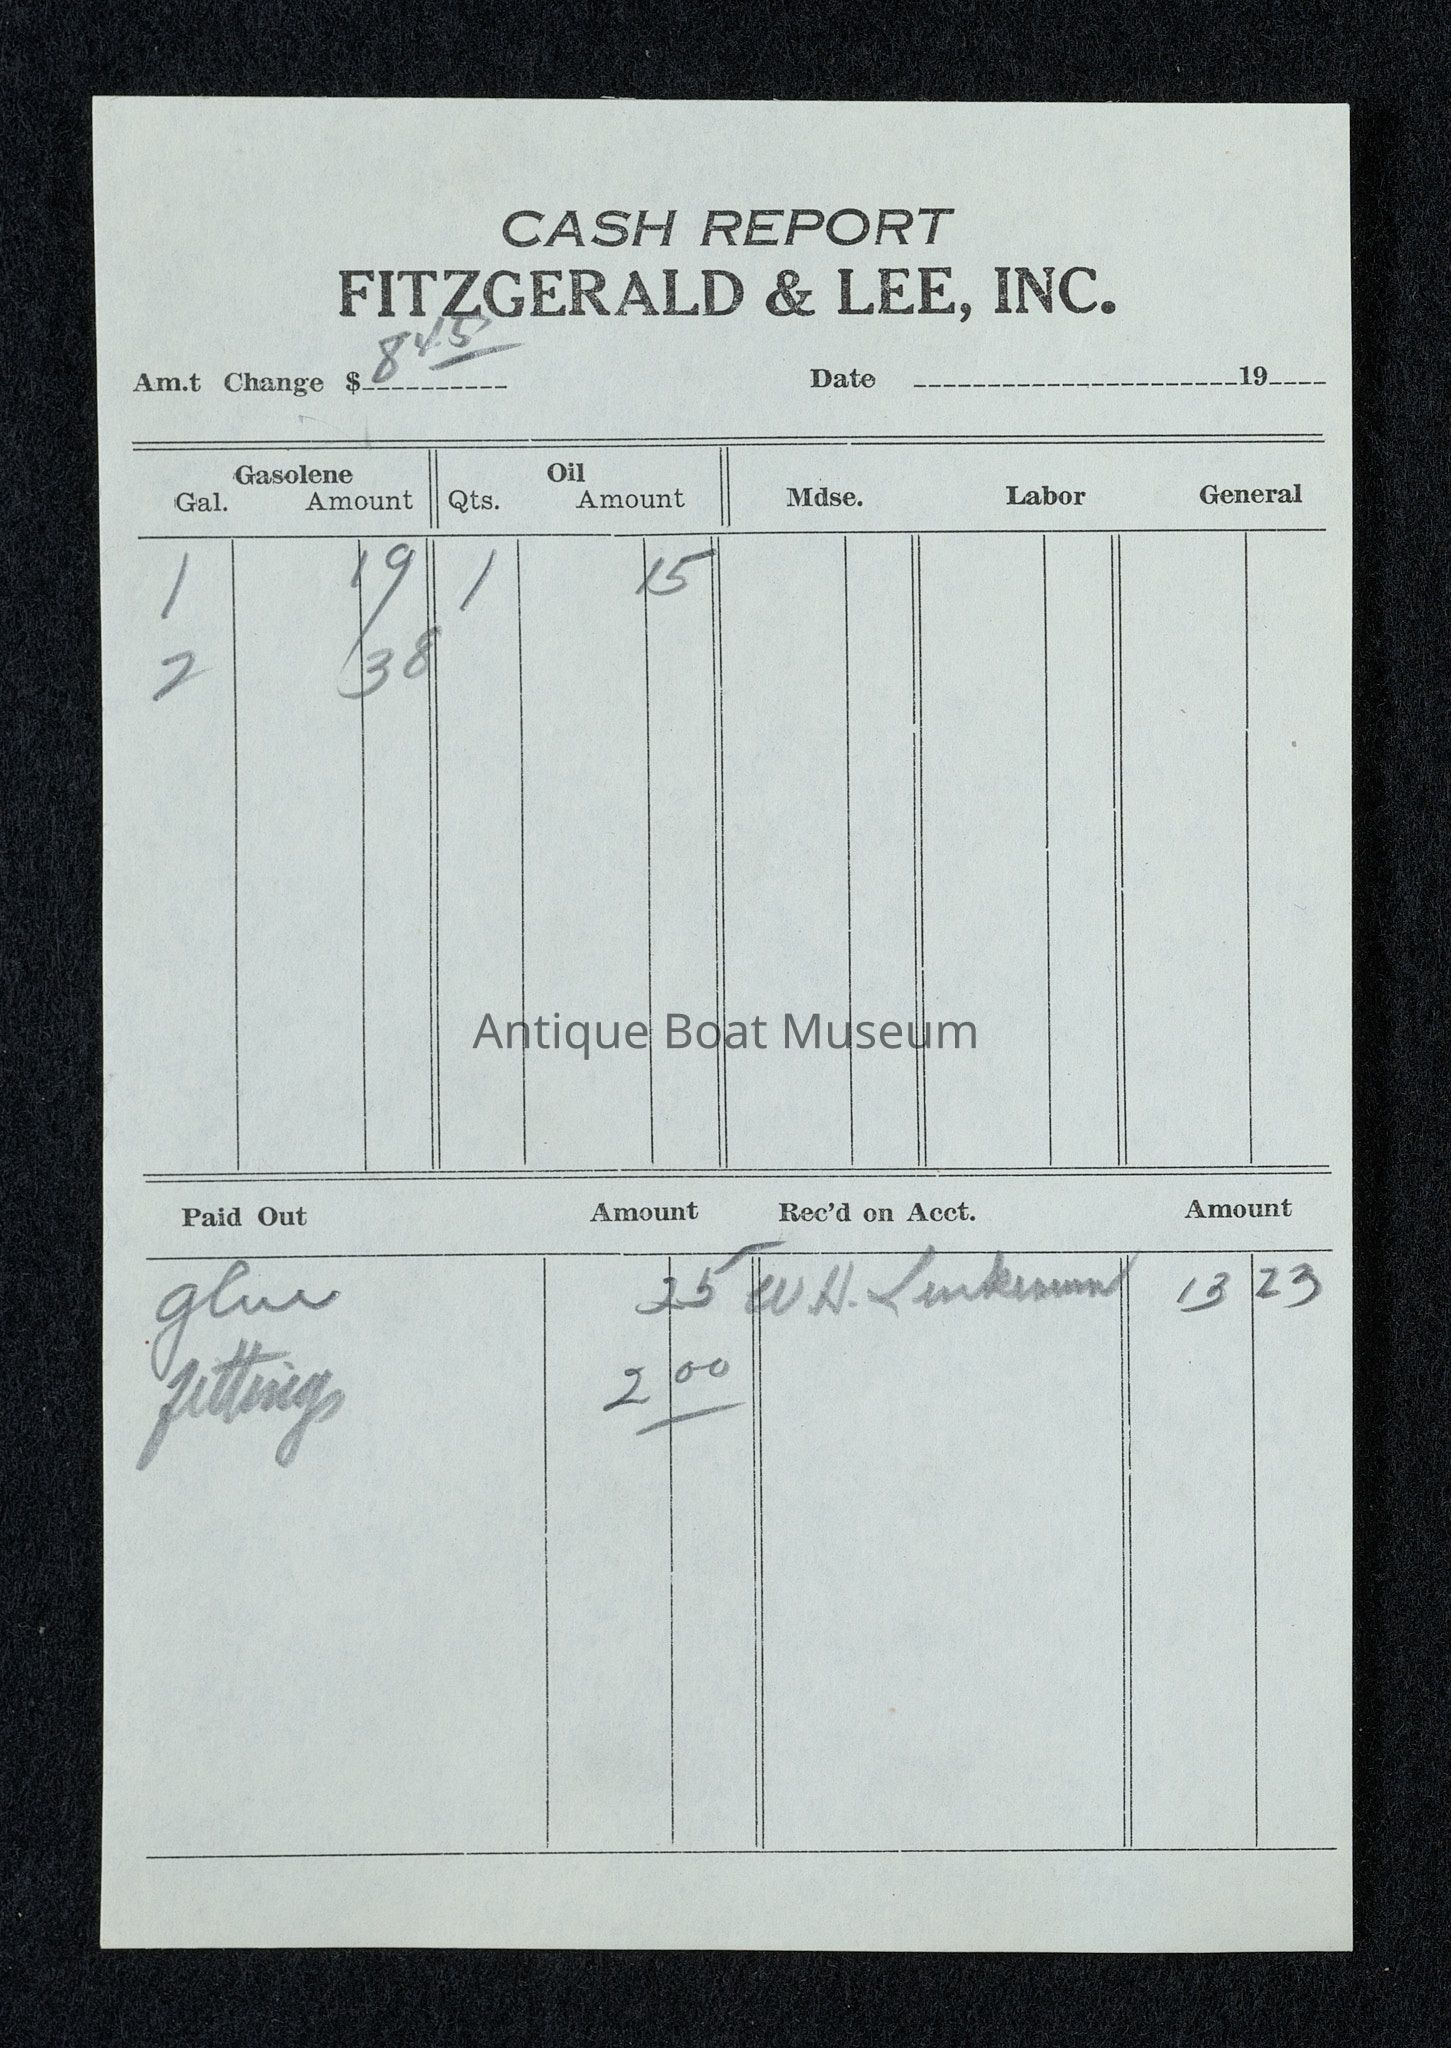 CASH REPORT
FITZGERALD & LEE, INC.
Am.t Change $ 8 45 Date 19
Gasolene Oil
Gal. Amount Qts. Amount Mdse. Labor General
1 19 1 15
2 38
Antique Boat Museum
Paid Out Amount Rec'd on Acct. Amount
glue 35 W. H. 13 23
fittings 2 00